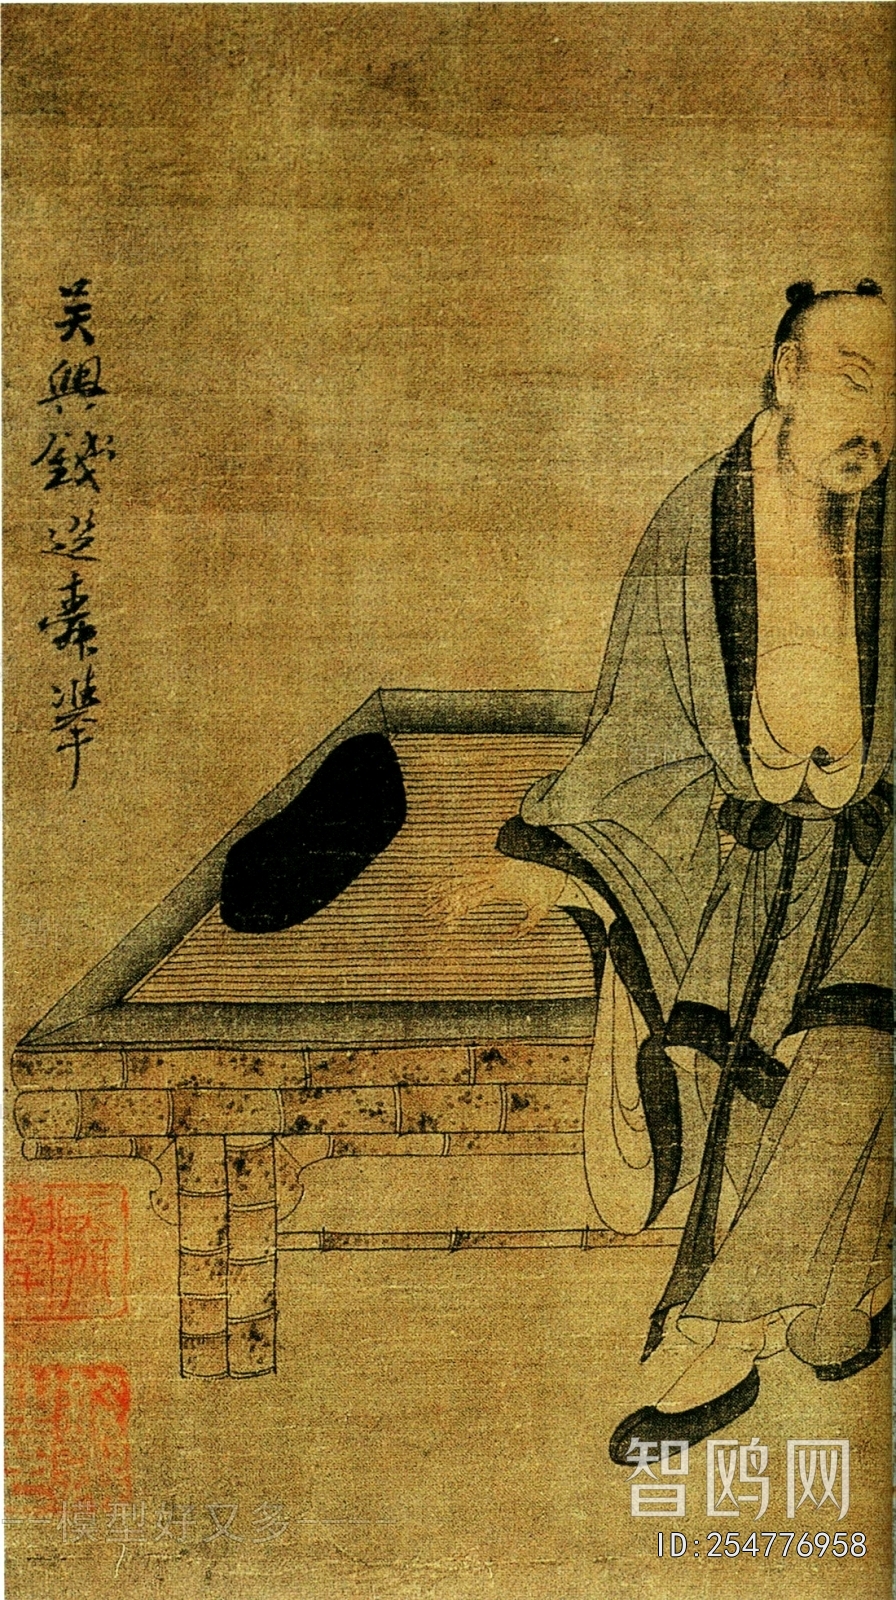 吴興錢選舜舉
智鸥网
ID:254776958
模型好又多